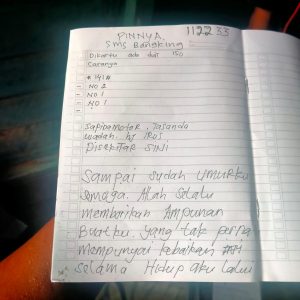 PINNYA. 112233
SMS Bangking
Dikartu ada duit 150
Caranya
* 141 #
- NO 2
- NO 1
- NO 1
Wadah. hj IROS
DISEKITAR SINI
Sampai sudah umurku
semoga. Allah selalu
memberikan Ampunan
Buatku. yang tak pernah
mempunyai kebaikan
selama Hidup aku lalui